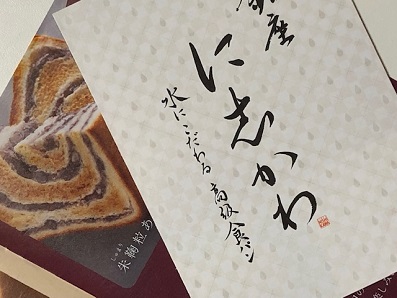 銀座
に志かわ
水にこだわる高級食パン
米麹粒あ